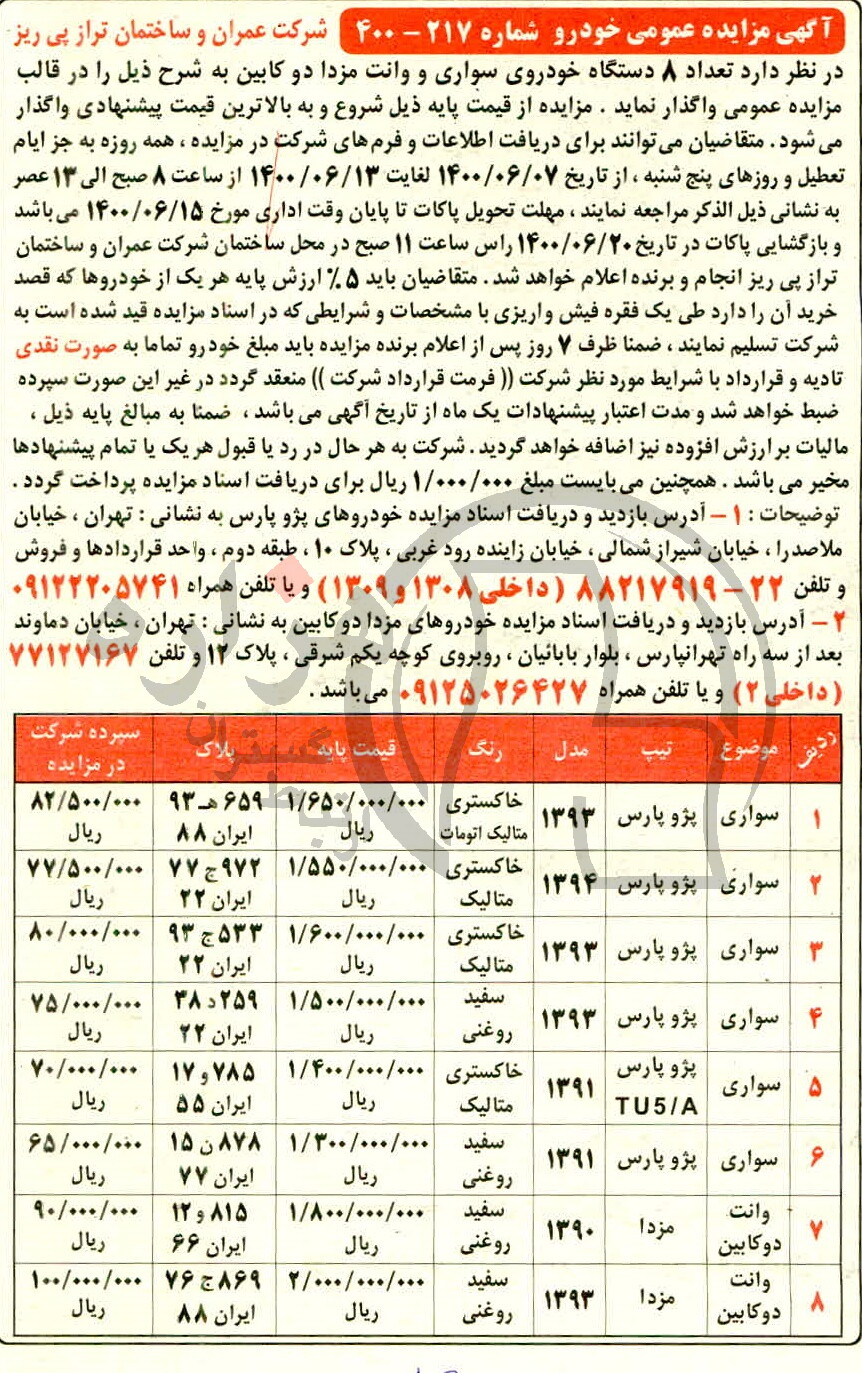 آگهی مزایده عمومی خودرو شماره ۲۱۷ – ۴۰۰ شرکت عمران و ساختمان تراز پی ریز
در نظر دارد تعداد ۸ دستگاه خودروی سواری و وانت مزدا دو کابین به شرح ذیل را در قالب
مزایده عمومی واگذار نماید . مزایده از قیمت پایه ذیل شروع و به بالاترین قیمت پیشنهادی واگذار
می شود . متقاضیان می‌توانند برای دریافت اطلاعات و فرم‌های شرکت در مزایده ، همه روزه به جز ایام
تعطیل و روزهای پنج شنبه ، از تاریخ ۱۴۰۰/۰۶/۰۷ لغایت ۱۴۰۰/۰۶/۱۳ از ساعت ۸ صبح الی ۱۳ عصر
به نشانی ذیل الذکر مراجعه نمایند ، مهلت تحویل پاکات تا پایان وقت اداری مورخ ۱۴۰۰/۰۶/۱۵ می باشد
و بازگشایی پاکات در تاریخ ۱۴۰۰/۰۶/۲۰ راس ساعت ۱۱ صبح در محل ساختمان شرکت عمران و ساختمان
تراز پی ریز انجام و برنده اعلام خواهد شد . متقاضیان باید ۵٪ ارزش پایه هر یک از خودروها که قصد
خرید آن را دارد طی یک فقره فیش واریزی با مشخصات و شرایطی که در اسناد مزایده قید شده است به
شرکت تسلیم نمایند ، ضمنا ظرف ۷ روز پس از اعلام برنده مزایده باید مبلغ خودرو تماما به صورت نقدی
تادیه و قرارداد با شرایط مورد نظر شرکت (( فرمت قرارداد شرکت )) منعقد گردد در غیر این صورت سپرده
ضبط خواهد شد و مدت اعتبار پیشنهادات یک ماه از تاریخ آگهی می باشد ، ضمنا به مبالغ پایه ذیل ،
مالیات بر ارزش افزوده نیز اضافه خواهد گردید . شرکت به هر حال در رد یا قبول هر یک یا تمام پیشنهادها
مخیر می باشد . همچنین می‌بایست مبلغ ۱/۰۰۰/۰۰۰ ریال برای دریافت اسناد مزایده پرداخت گردد .
توضیحات : ۱ – آدرس بازدید و دریافت اسناد مزایده خودروهای پژو پارس به نشانی : تهران ، خیابان
ملاصدرا ، خیابان شیراز شمالی ، خیابان زاینده رود غربی ، پلاک ۱۰ ، طبقه دوم ، واحد قراردادها و فروش
و تلفن ۲۲ – ۸۸۲۱۷۹۱۹ ( داخلی ۱۳۰۸ و ۱۳۰۹ ) و یا تلفن همراه ۰۹۱۲۲۲۰۵۷۴۱
۲ – آدرس بازدید و دریافت اسناد مزایده خودروهای مزدا دو کابین به نشانی : تهران ، خیابان دماوند
بعد از سه راه تهرانپارس ، بلوار بابائیان ، روبروی کوچه یکم شرقی ، پلاک ۱۲ و تلفن ۷۷۱۲۷۱۶۷
( داخلی ۲ ) و یا تلفن همراه ۰۹۱۲۵۰۲۶۴۲۷ می باشد .
ردیف موضوع تیپ مدل رنگ قیمت پایه پلاک سپرده شرکت در مزایده
۱ سواری پژو پارس ۱۳۹۳ خاکستری متالیک اتومات ۱/۶۵۰/۰۰۰/۰۰۰ ریال ۶۵۹ هـ ۹۳ ایران ۸۸ ۸۲/۵۰۰/۰۰۰ ریال
۲ سواری پژو پارس ۱۳۹۴ خاکستری متالیک ۱/۵۵۰/۰۰۰/۰۰۰ ریال ۹۷۲ ج ۷۷ ایران ۲۲ ۷۷/۵۰۰/۰۰۰ ریال
۳ سواری پژو پارس ۱۳۹۳ خاکستری متالیک ۱/۶۰۰/۰۰۰/۰۰۰ ریال ۵۳۳ ج ۹۳ ایران ۲۲ ۸۰/۰۰۰/۰۰۰ ریال
۴ سواری پژو پارس ۱۳۹۳ سفید روغنی ۱/۵۰۰/۰۰۰/۰۰۰ ریال ۲۵۹ د ۳۸ ایران ۲۲ ۷۵/۰۰۰/۰۰۰ ریال
۵ سواری پژو پارس TU5/A ۱۳۹۱ خاکستری متالیک ۱/۴۰۰/۰۰۰/۰۰۰ ریال ۷۸۵ و ۱۷ ایران ۵۵ ۷۰/۰۰۰/۰۰۰ ریال
۶ سواری پژو پارس ۱۳۹۱ سفید روغنی ۱/۳۰۰/۰۰۰/۰۰۰ ریال ۸۷۸ ن ۱۵ ایران ۷۷ ۶۵/۰۰۰/۰۰۰ ریال
۷ وانت دوکابین مزدا ۱۳۹۰ سفید روغنی ۱/۸۰۰/۰۰۰/۰۰۰ ریال ۸۱۵ و ۱۲ ایران ۶۶ ۹۰/۰۰۰/۰۰۰ ریال
۸ وانت دوکابین مزدا ۱۳۹۳ سفید روغنی ۲/۰۰۰/۰۰۰/۰۰۰ ریال ۸۶۹ ج ۷۶ ایران ۸۸ ۱۰۰/۰۰۰/۰۰۰ ریال